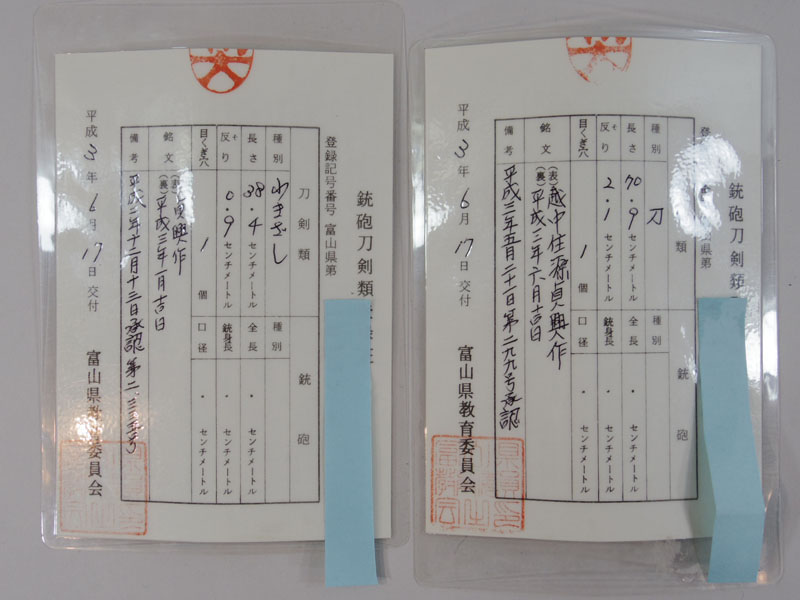 銃砲刀剣類
登録記号番号 富山県第
刀剣類
銃砲
種別 わきざし
種別
長さ 38.4 センチメートル
全長 ・ センチメートル
反り そ 0.9 センチメートル
銃身長 ・ センチメートル
目くぎ穴 1 個
口径 ・ センチメートル
銘文 (表) 貞興作
(裏) 平成三年一月吉日
備考 平成二年十二月十三日承認 第二
平成3年6月17日交付
富山県教育委員会
銃砲刀剣類
登 富山県第
類
銃砲
種別 刀
種別
長さ 70.9 センチメートル
全長 ・ センチメートル
反り そ 2.1 センチメートル
銃身長 ・ センチメートル
目くぎ穴 1 個
口径 ・ センチメートル
銘文 (表) 越中住源貞興作
(裏) 平成三年六月吉日
備考 平成三年五月二十一日第二九九号承認
平成3年6月17日交付
富山県教育委員会